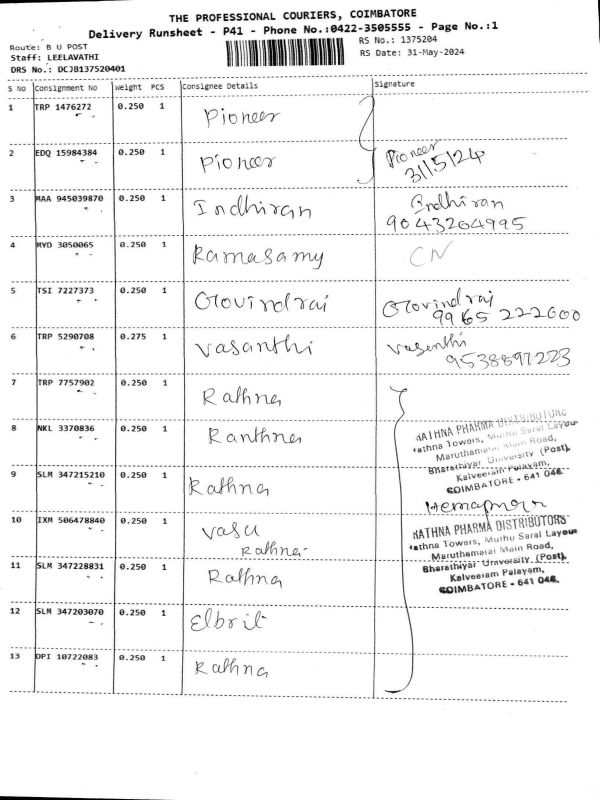 THE PROFESSIONAL COURIERS, COIMBATORE
Delivery Runsheet - P41 - Phone No.:0422-3505555 - Page No.:1
Route: B U POST
RS No.: 1375204
Staff: LEELAVATHI
RS Date: 31-May-2024
DRS No.: DCJB137520401
S No Consignment No Weight PCS Consignee Details Signature
1 TRP 1476272 0.250 1 Pioneer
2 EDQ 15984384 0.250 1 Pioneer Pioneer
31/5/24
3 MAA 945039870 0.250 1 Indhiran Indhiran
9043264995
4 MYD 3050065 0.250 1 Ramasamy CN
5 TSI 7227373 0.250 1 Govindraj Govindraj
9965 222600
6 TRP 5290708 0.275 1 Vasanthi Vasanthi
9538897223
7 TRP 7757902 0.250 1 Rathna
8 NKL 3370836 0.250 1 Ranthna
RATHNA PHARMA DISTRIBUTORS
Rathna Towers, Muthu Saral Layout
Maruthamalai Main Road,
Bharathiyar University (Post),
Kalveeram Palayam,
COIMBATORE - 641 046.
9 SLM 347215210 0.250 1 Rathna
10 IXM 506478840 0.250 1 Vasu
Rathna
RATHNA PHARMA DISTRIBUTORS
Rathna Towers, Muthu Saral Layout
Maruthamalai Main Road,
Bharathiyar University (Post),
Kalveeram Palayam,
COIMBATORE - 641 046.
11 SLM 347228831 0.250 1 Rathna
12 SLM 347203070 0.250 1 Elbrit
13 DPI 10722083 0.250 1 Rathna